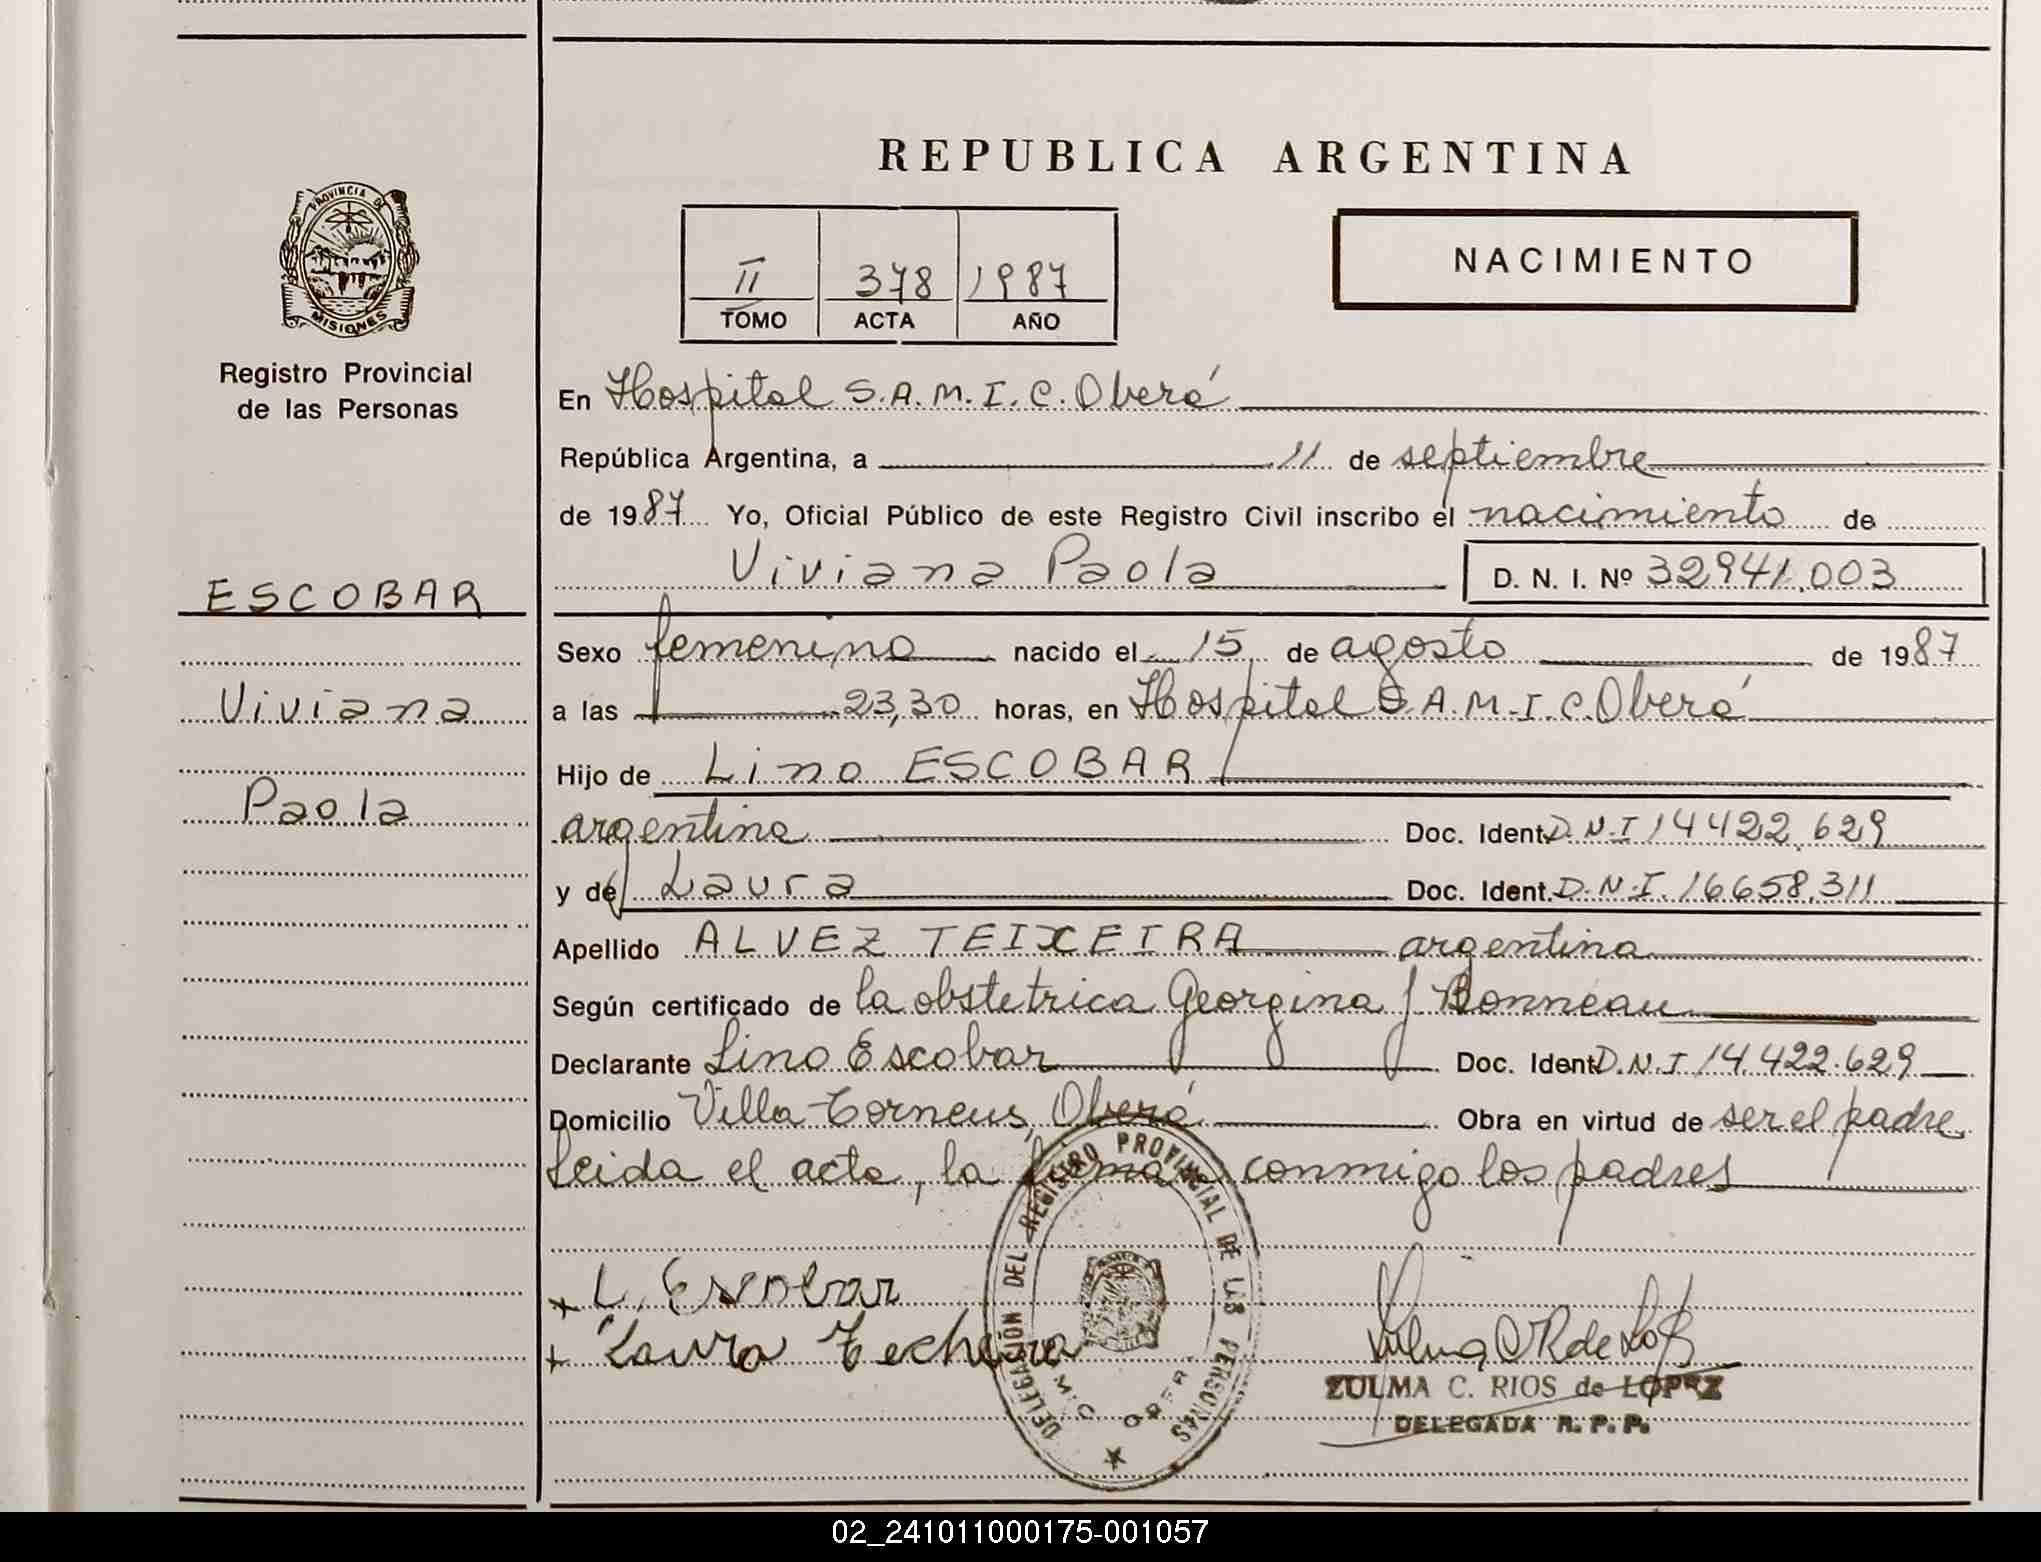 REPUBLICA ARGENTINA
PROVINCIA DE
MISIONES
Registro Provincial
de las Personas
II 378 1987
TOMO ACTA AÑO
NACIMIENTO
En Hospital S.A.M.I.C. Oberá
República Argentina, a 11 de septiembre
de 1987 Yo, Oficial Público de este Registro Civil inscribo el nacimiento de
Viviana Paola D. N. I. Nº 32941.003
ESCOBAR
Viviana
Paola
Sexo femenino nacido el 15 de agosto de 1987
a las 23,30 horas, en Hospital S.A.M.I.C. Oberá
Hijo de Lino ESCOBAR
argentina Doc. Ident. D.N.I 14422.629
y de Laura Doc. Ident. D.N.I. 16658.311
Apellido ALVEZ TEIXEIRA argentina
Según certificado de la obstetrica Georgina J Bonneau
Declarante Lino Escobar Doc. Ident. D.N.I 14422.629
Domicilio Villa Torneus, Oberá Obra en virtud de ser el padre
Leida el acta, la firman conmigo los padres
+ L. Escobar
+ Laura Techera
DELEGACIÓN DEL REGISTRO PROVINCIAL DE LAS PERSONAS
ZULMA C. RIOS de LOPEZ
DELEGADA R. P. P.
02_241011000175-001057